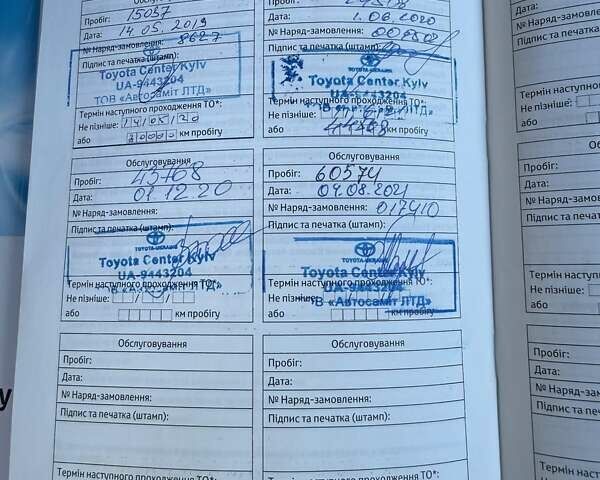 Пробіг: 15037
Дата: 14.05.2019
№ Наряд-замовлення: 8627
Підпис та печатка (штамп):
Toyota Center Kyiv
UA-9443204
ТОВ «Автосаміт ЛТД»
Термін наступного проходження ТО*:
Не пізніше: 14/05/20
або 30000 км пробігу
Пробіг:
Дата: 1.06.2020
№ Наряд-замовлення:
Підпис та печатка (штамп):
TOYOTA-UKRAINE
Toyota Center Kyiv
UA-9443204
Термін наступного проходження ТО*:
Не пізніше:
або км пробігу
Обслуговування
Пробіг: 43768
Дата: 01.12.20
№ Наряд-замовлення:
Підпис та печатка (штамп):
TOYOTA-UKRAINE
Toyota Center Kyiv
UA-9443204
Термін наступного проходження ТО*:
Не пізніше:
або км пробігу
Обслуговування
Пробіг: 60574
Дата: 04.08.2021
№ Наряд-замовлення: 017410
Підпис та печатка (штамп):
TOYOTA-UKRAINE
Toyota Center Kyiv
UA-9443204
«Автосаміт ЛТД»
Термін наступного
Не пізніше:
або км пробігу
Обслуговування
Пробіг:
Дата:
№ Наряд-замовлення:
Підпис та печатка (штамп):
Термін наступного проходження ТО*:
Обслуговування
Пробіг:
Дата:
№ Наряд-замовлення:
Підпис та печатка (штамп):
Термін наступного проходження ТО*:
Дата:
№ Наряд-замовлен
Підпис та печатка
Термін наступного
Не пізніше:
або
Пробіг:
Дата:
№ Наряд-замовлен
Підпис та печатка (
Термін наступного
Не пізніше:
або
Пробіг:
Дата:
№ Наряд-замовлен
Підпис та печатка (ш